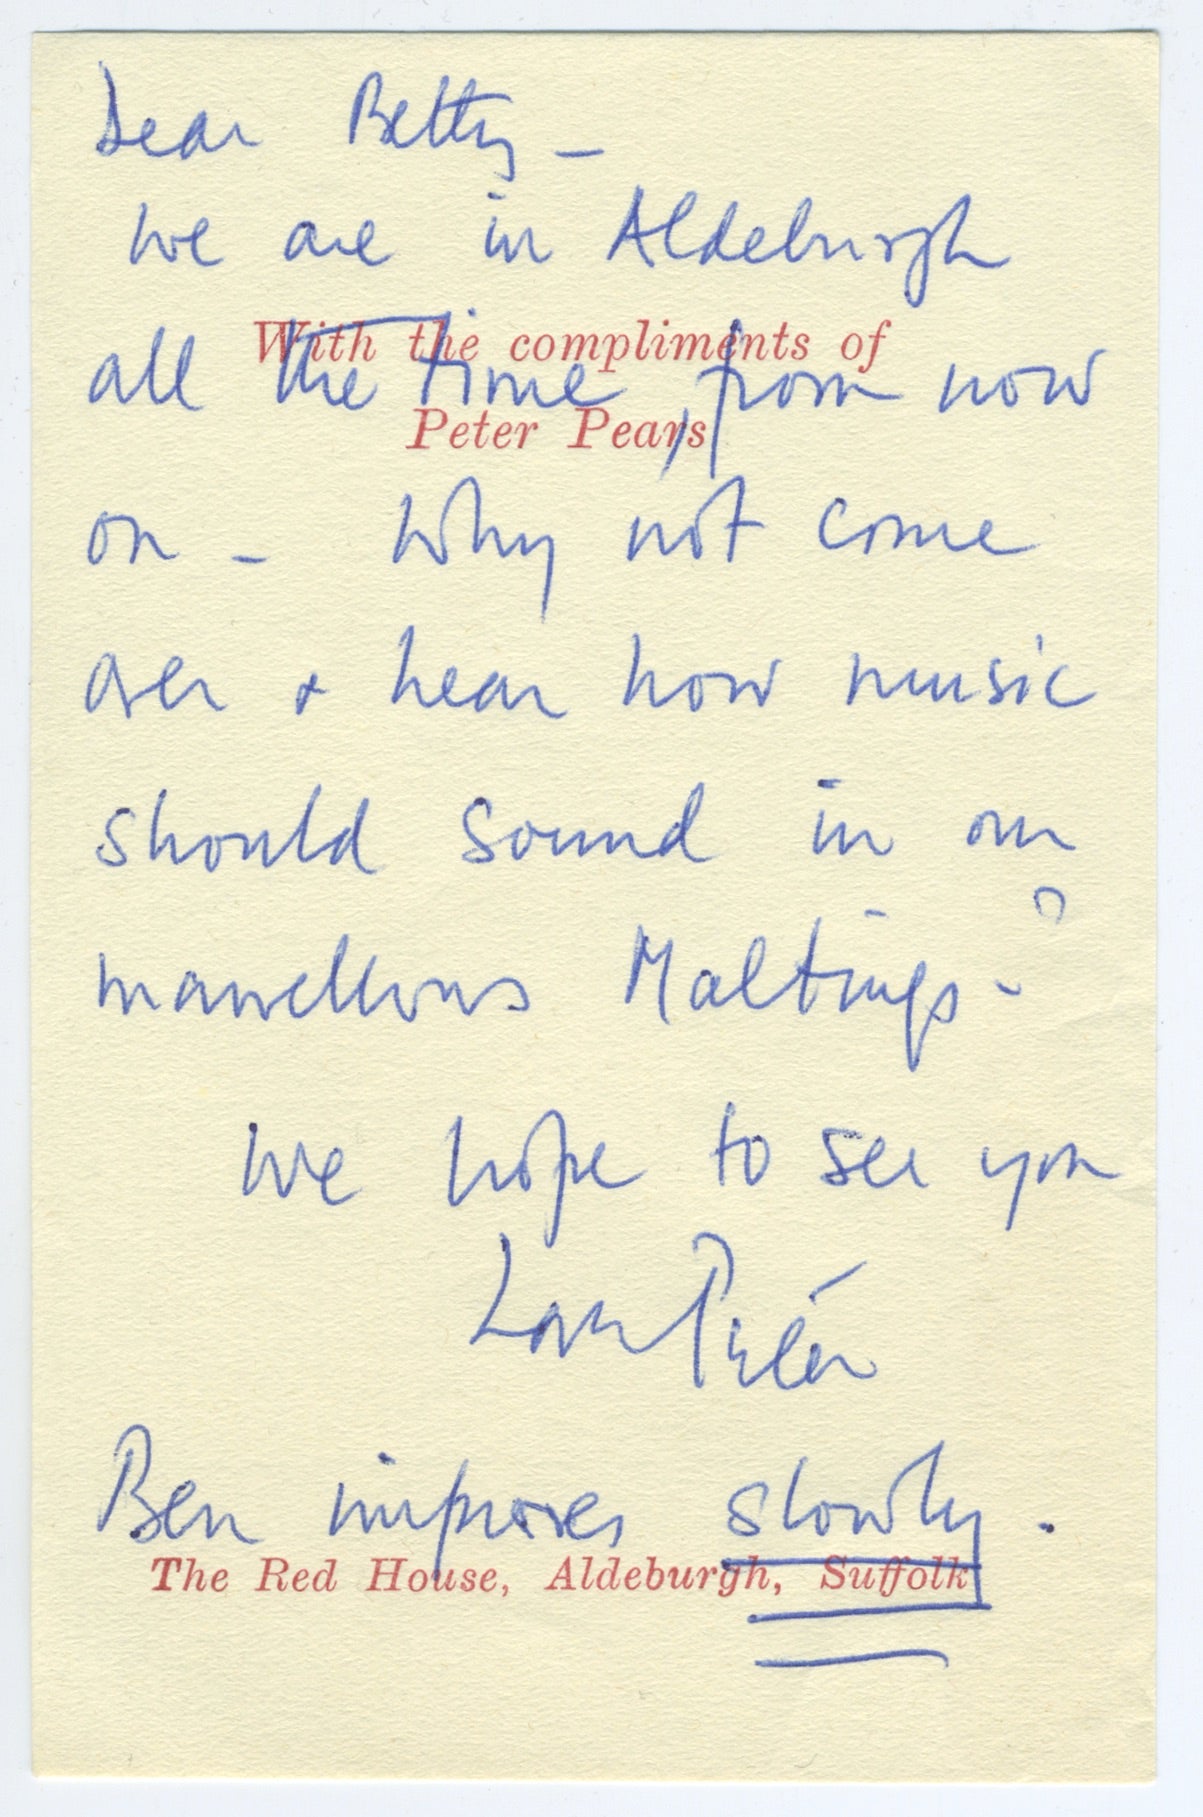 Dear Betty –
we are in Aldeburgh
With the compliments of
all the time, from now
Peter Pears
on – Why not come
over & hear how music
should sound in our
marvellous Maltings – ?
We hope to see you
Love Peter
Ben improves slowly.
The Red House, Aldeburgh, Suffolk